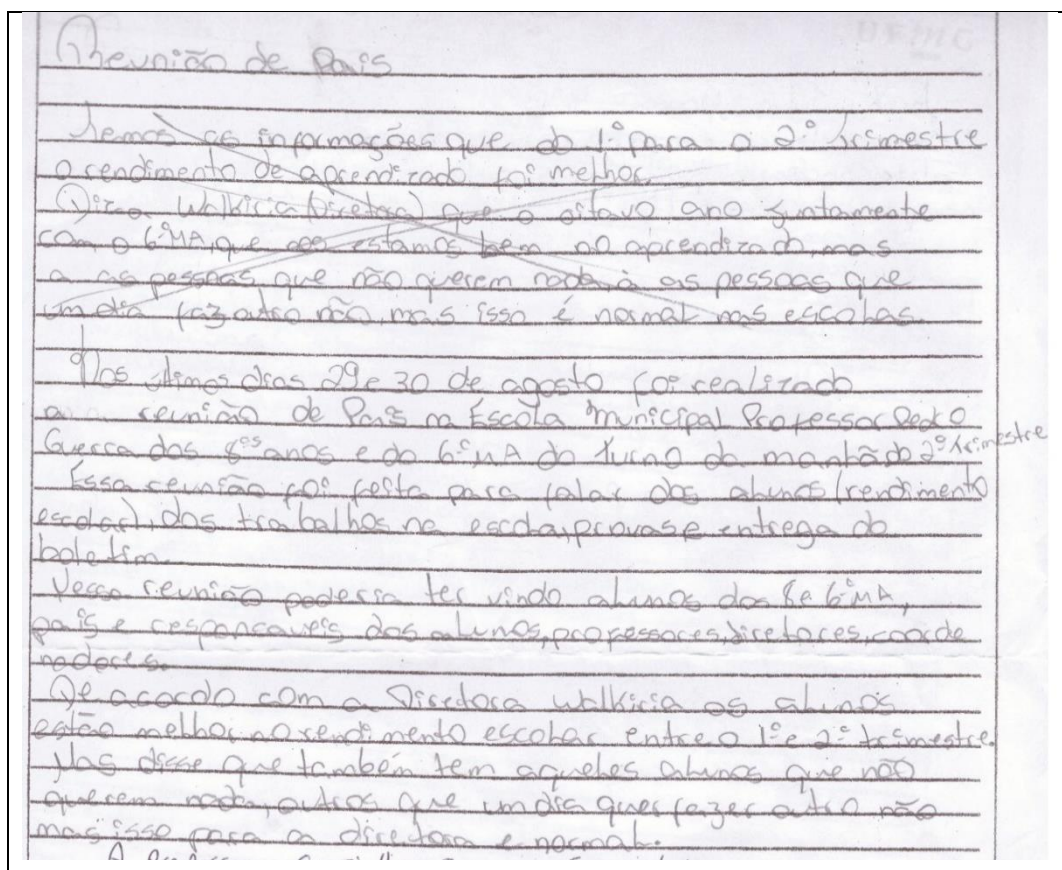 Reunião de Pais
Temos as informações que do 1º para o 2º trimestre
o rendimento de aprendizado foi melhor.
Diz a Walkiria (Diretora) que o oitavo ano juntamente
com o 6ºMA, que estamos bem no aprendizado, mas
a as pessoas que não querem nada, à as pessoas que
um dia faz outro não, mas isso é normal nas escolas.
Nos últimos dias 29 e 30 de agosto foi realizado
a reunião de Pais na Escola Municipal Professor Pedro
Guerra dos 8ºs anos e do 6ºMA do turno da manhã do 2º trimestre
Essa reunião foi feita para falar dos alunos (rendimento
escolar), dos trabalhos na escola, provas e entrega do
boletim.
Nessa reunião poderia ter vindo alunos dos 8 e 6ºMA,
pais e responsaveis dos alunos, professores, diretores, coorde
nadores.
De acordo com a Diretora Walkiria os alunos
estão melhor no rendimento escolar entre o 1º e 2º trimestre.
Mas disse que também tem aqueles alunos que não
querem nada, outros que um dia quer fazer outro não
mas isso para a diretora e normal.